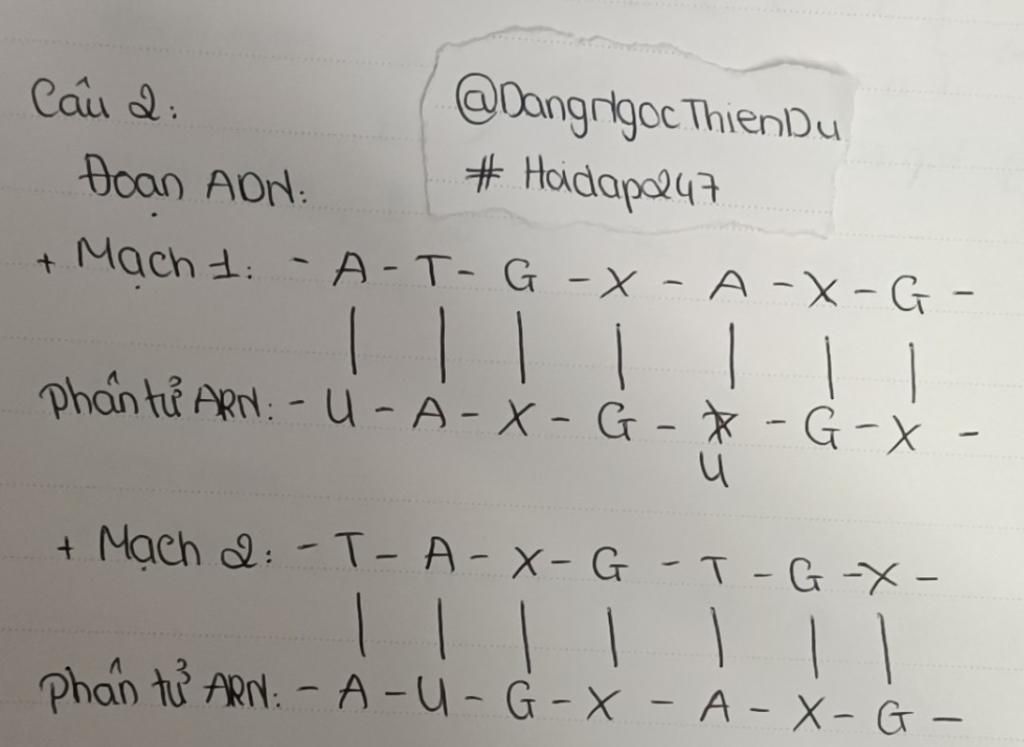 Câu 2:
@DangNgocThienDu
# Hoidap247
Đoạn ADN:
+ Mạch 1: - A - T - G - X - A - X - G -
Phân tử ARN: - U - A - X - G - - G - X -
U
+ Mạch 2: - T - A - X - G - T - G - X -
Phân tử ARN: - A - U - G - X - A - X - G -